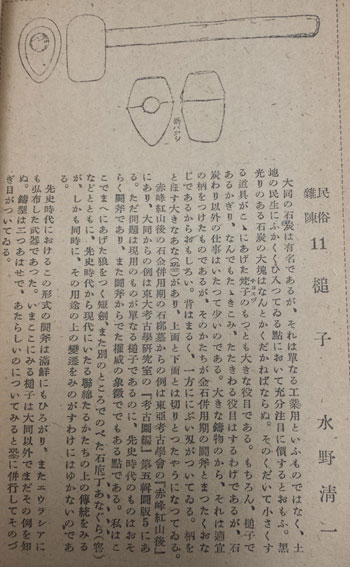 民俗
雜陳
11 槌子 水野清一
大同の石炭は有名であるが、それは單なる工業用といふものではなく、土
地の民生にふかくくひ入つてゐる點において充分注目に價するとおもふ。黑
光りのある石炭の大塊はなんとかくだかねばならぬ。そのくだいて小さくす
る道具がこゝにあげた槌子のもつとも大きな役目である。もちろん、槌子で
あるかぎり、なんでもたゝきこみ、たたきわる役目はするわけであるが、石
炭わり以外の仕事はいたつて少いのである。大きな鑄物のから、それは適宜
の柄をつけたものであるが、そのかたちが金石併用期の鬪斧とまつたくおな
じであるからおもしろい。背はまるく、一方ににぶい刃がついてゐる。柄を
とほす大きなあな(銎)があり、上面と下面とは切りとつたやうになつてゐる。
赤峰紅山後の金石併用期の石槨墓からの例は東亞考古學會の『赤峰紅山後』
にあり、大同からの例は東大考古學研究室の『考古圖編』第五輯圖版5にあ
る。ただ問題は現用のものが單なる槌子であるのに、先史時代のものはおそ
らく鬪斧であり、また鬪斧からでた權威の象徴でもある點である。私はこ
こでまへにあげた狼をつく短劍、また別のところでのべた石庖丁、あなぐら(窖)
などとともに、先史時代から現代にいたる聯綿たるかたちの上の傳統をみる
が、しかも同時に、その用途の上の變遷をみのがすわけにはゆかないのであ
る。
先史時代におけるこの形式の鬪斧は滿鮮にもひろがり、またユウラシアに
も弘布した武器であつた。いまここにみる槌子は大同以外でまだその例を知
ぬ。鑄型は二つあはせで、あたらしいのについてみると恐に併行してそのつ
ぎ目がついてゐる。